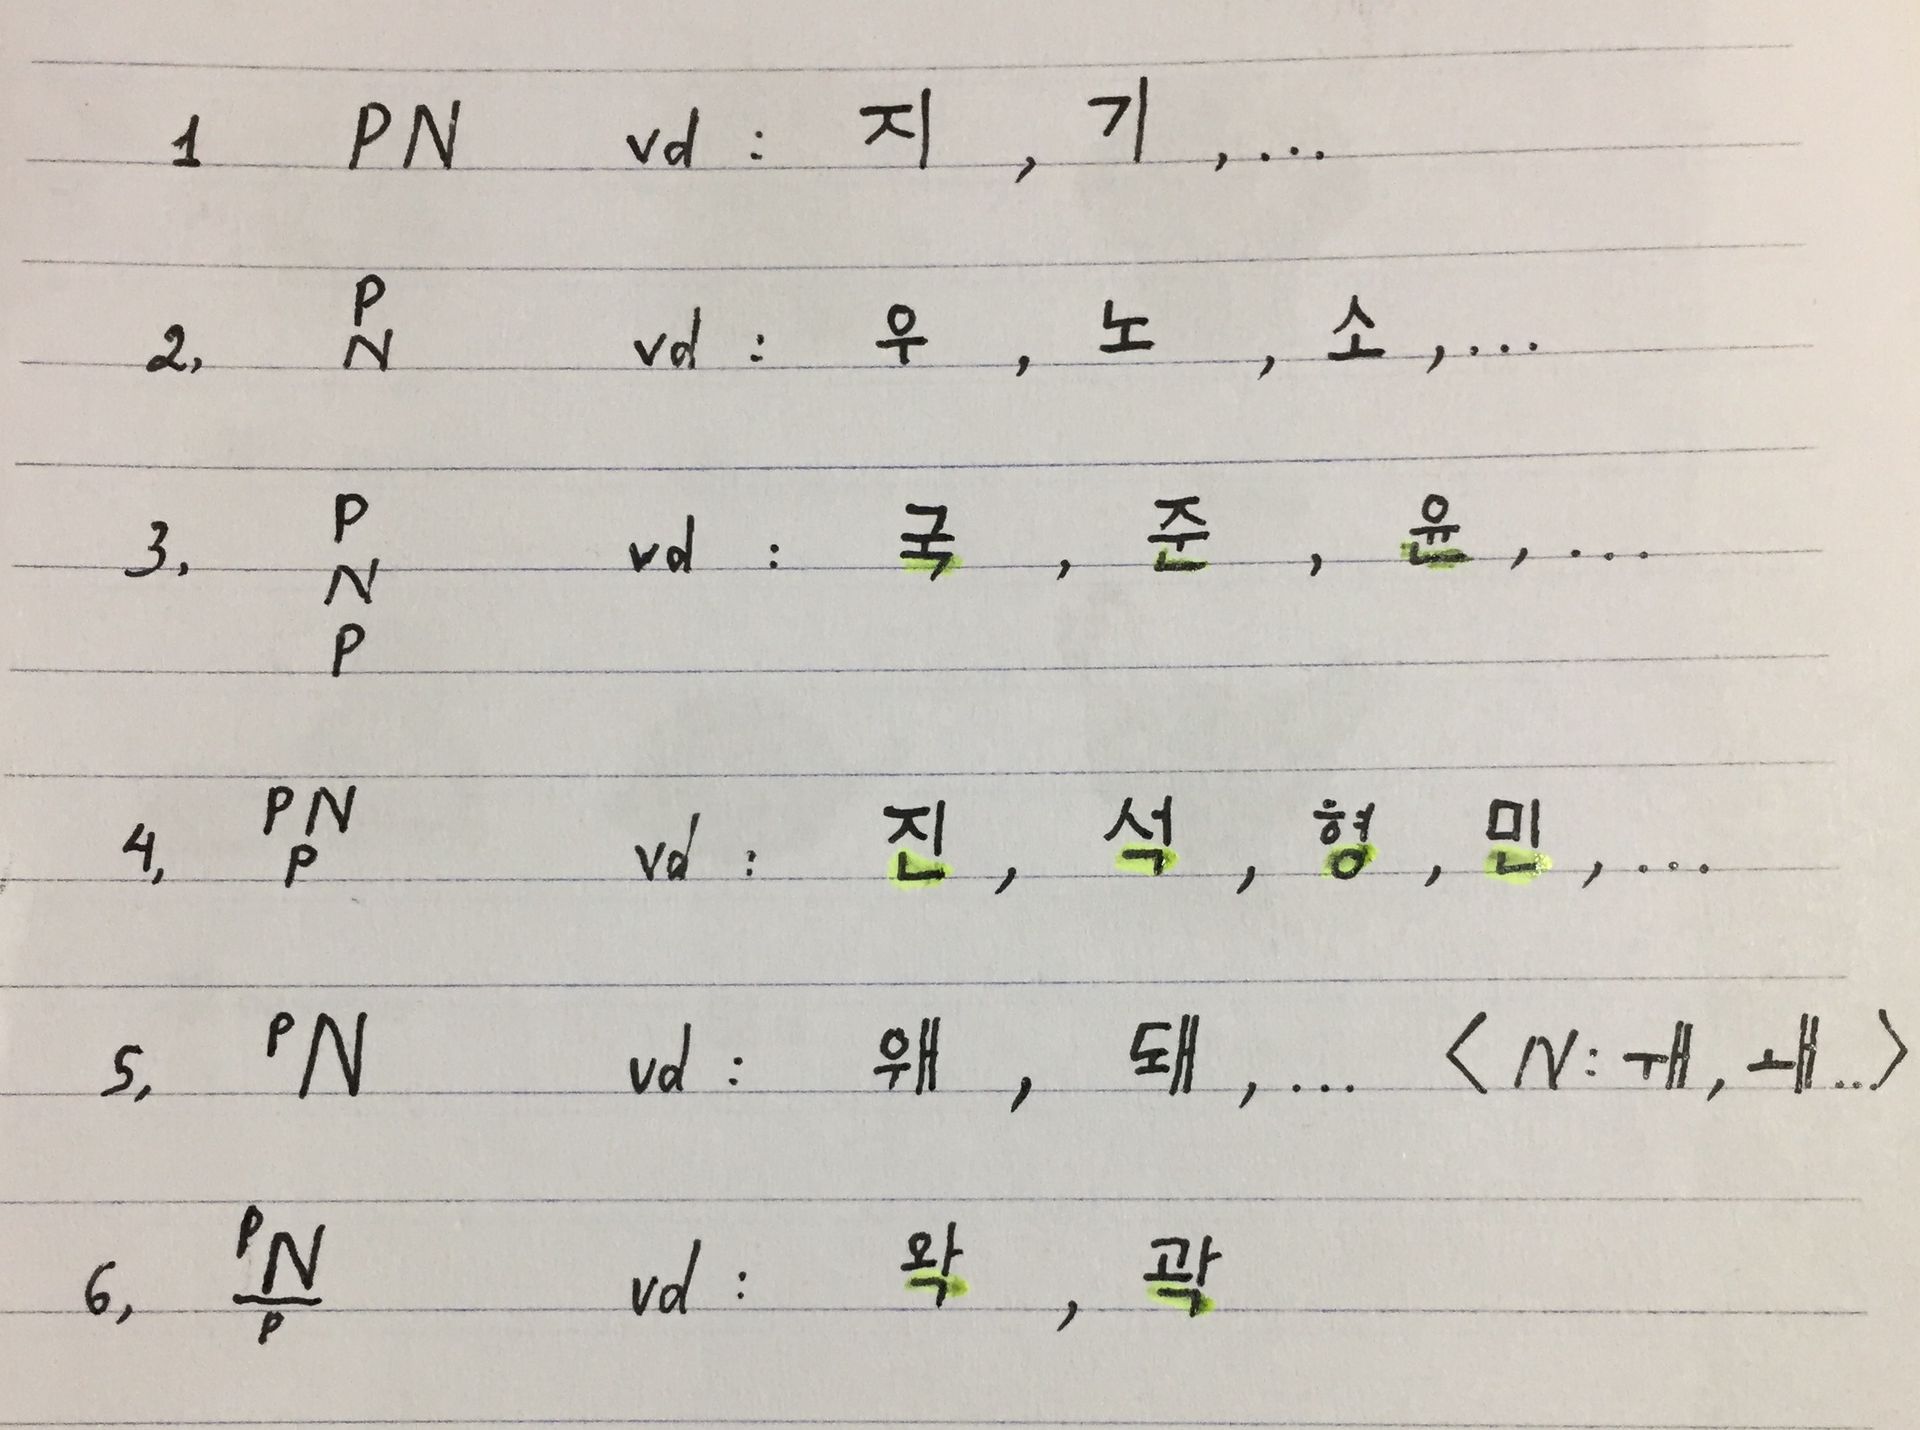 1 PN vd : 지 , 기 , ...
P
2, N vd : 우 , 노 , 소 , ...
P
3, N vd : 국 , 준 , 윤 , ...
P
4, PN vd : 진 , 석 , 형 , 민 , ...
P
5, PN vd : 우ㅐ , 돼 , ... < N : ㅜㅐ , ㅙ ... >
6, PN vd : 왁 , 곽
P